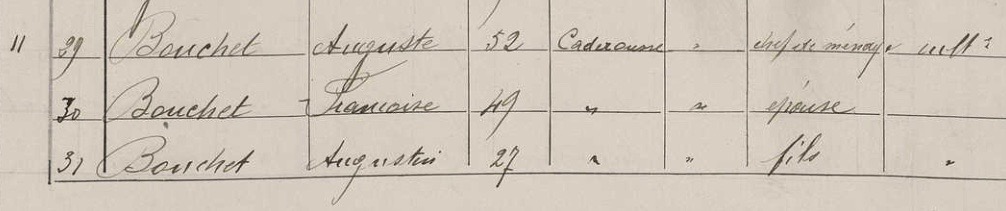 11 29 Bouchet Auguste 52 Caderousse " chef de ménage cultr
30 Bouchet Francoise 49 " " épouse
31 Bouchet Augustin 27 " " fils "